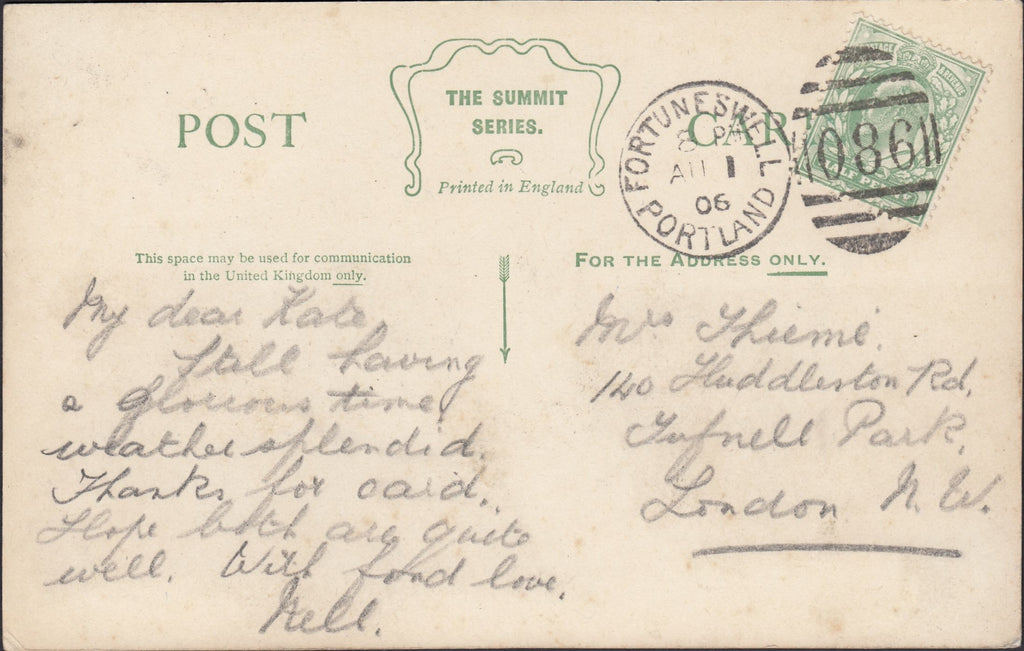 POST CARD
THE SUMMIT
SERIES.
Printed in England
FORTUNESWELL
8 PM
AU 1
06
PORTLAND
086
This space may be used for communication
in the United Kingdom only.
FOR THE ADDRESS ONLY.
My dear Kate,
Still having
a glorious time,
weather splendid.
Thanks for card.
Hope both are quite
well. With fond love,
Nell.
Mrs Thieme.
140 Huddleston Rd.
Tufnell Park,
London N.W.